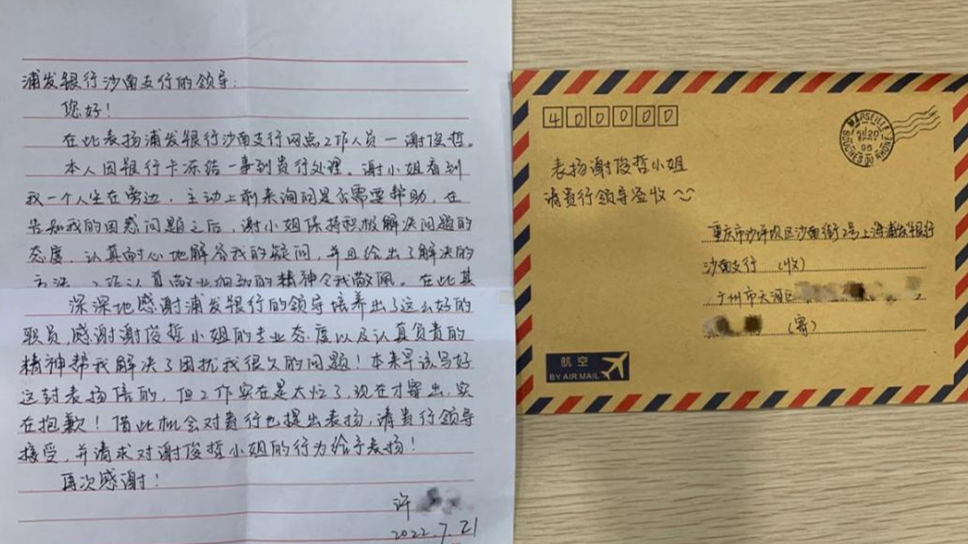 浦发银行沙南支行的领导:
您好!
在此表扬浦发银行沙南支行网点工作人员一谢俊哲。
本人因银行卡冻结一事到贵行处理。谢小姐看到
我一个人坐在旁边,主动上前来询问是否需要帮助,在
告知我的困惑问题之后,谢小姐保持积极解决问题的
态度,认真耐心地解答我的疑问,并且给出了解决的
方法,工作认真敬业 的精神令我敬佩。在此其
深深地感谢浦发银行的领导培养出了这么好的
职员,感谢谢俊哲小姐的专业态度以及认真负责的
精神帮我解决了困扰我很久的问题!本来早该写好
这封表扬信的,但工作实在是太忙了,现在才寄出,实
在抱歉!借此机会对贵行也提出表扬,请贵行领导
接受,并请求对谢俊哲小姐的行为给予表扬!
再次感谢!
许
2022.7.21
400000
MARSEILLE
95
BOUCHES DU RHONE
表扬谢俊哲小姐
请贵行领导签收
重庆市沙坪坝区沙南街2号上海浦发银行
沙南支行 (收)
广州市天河区
(寄)
航空
BY AIR MAIL